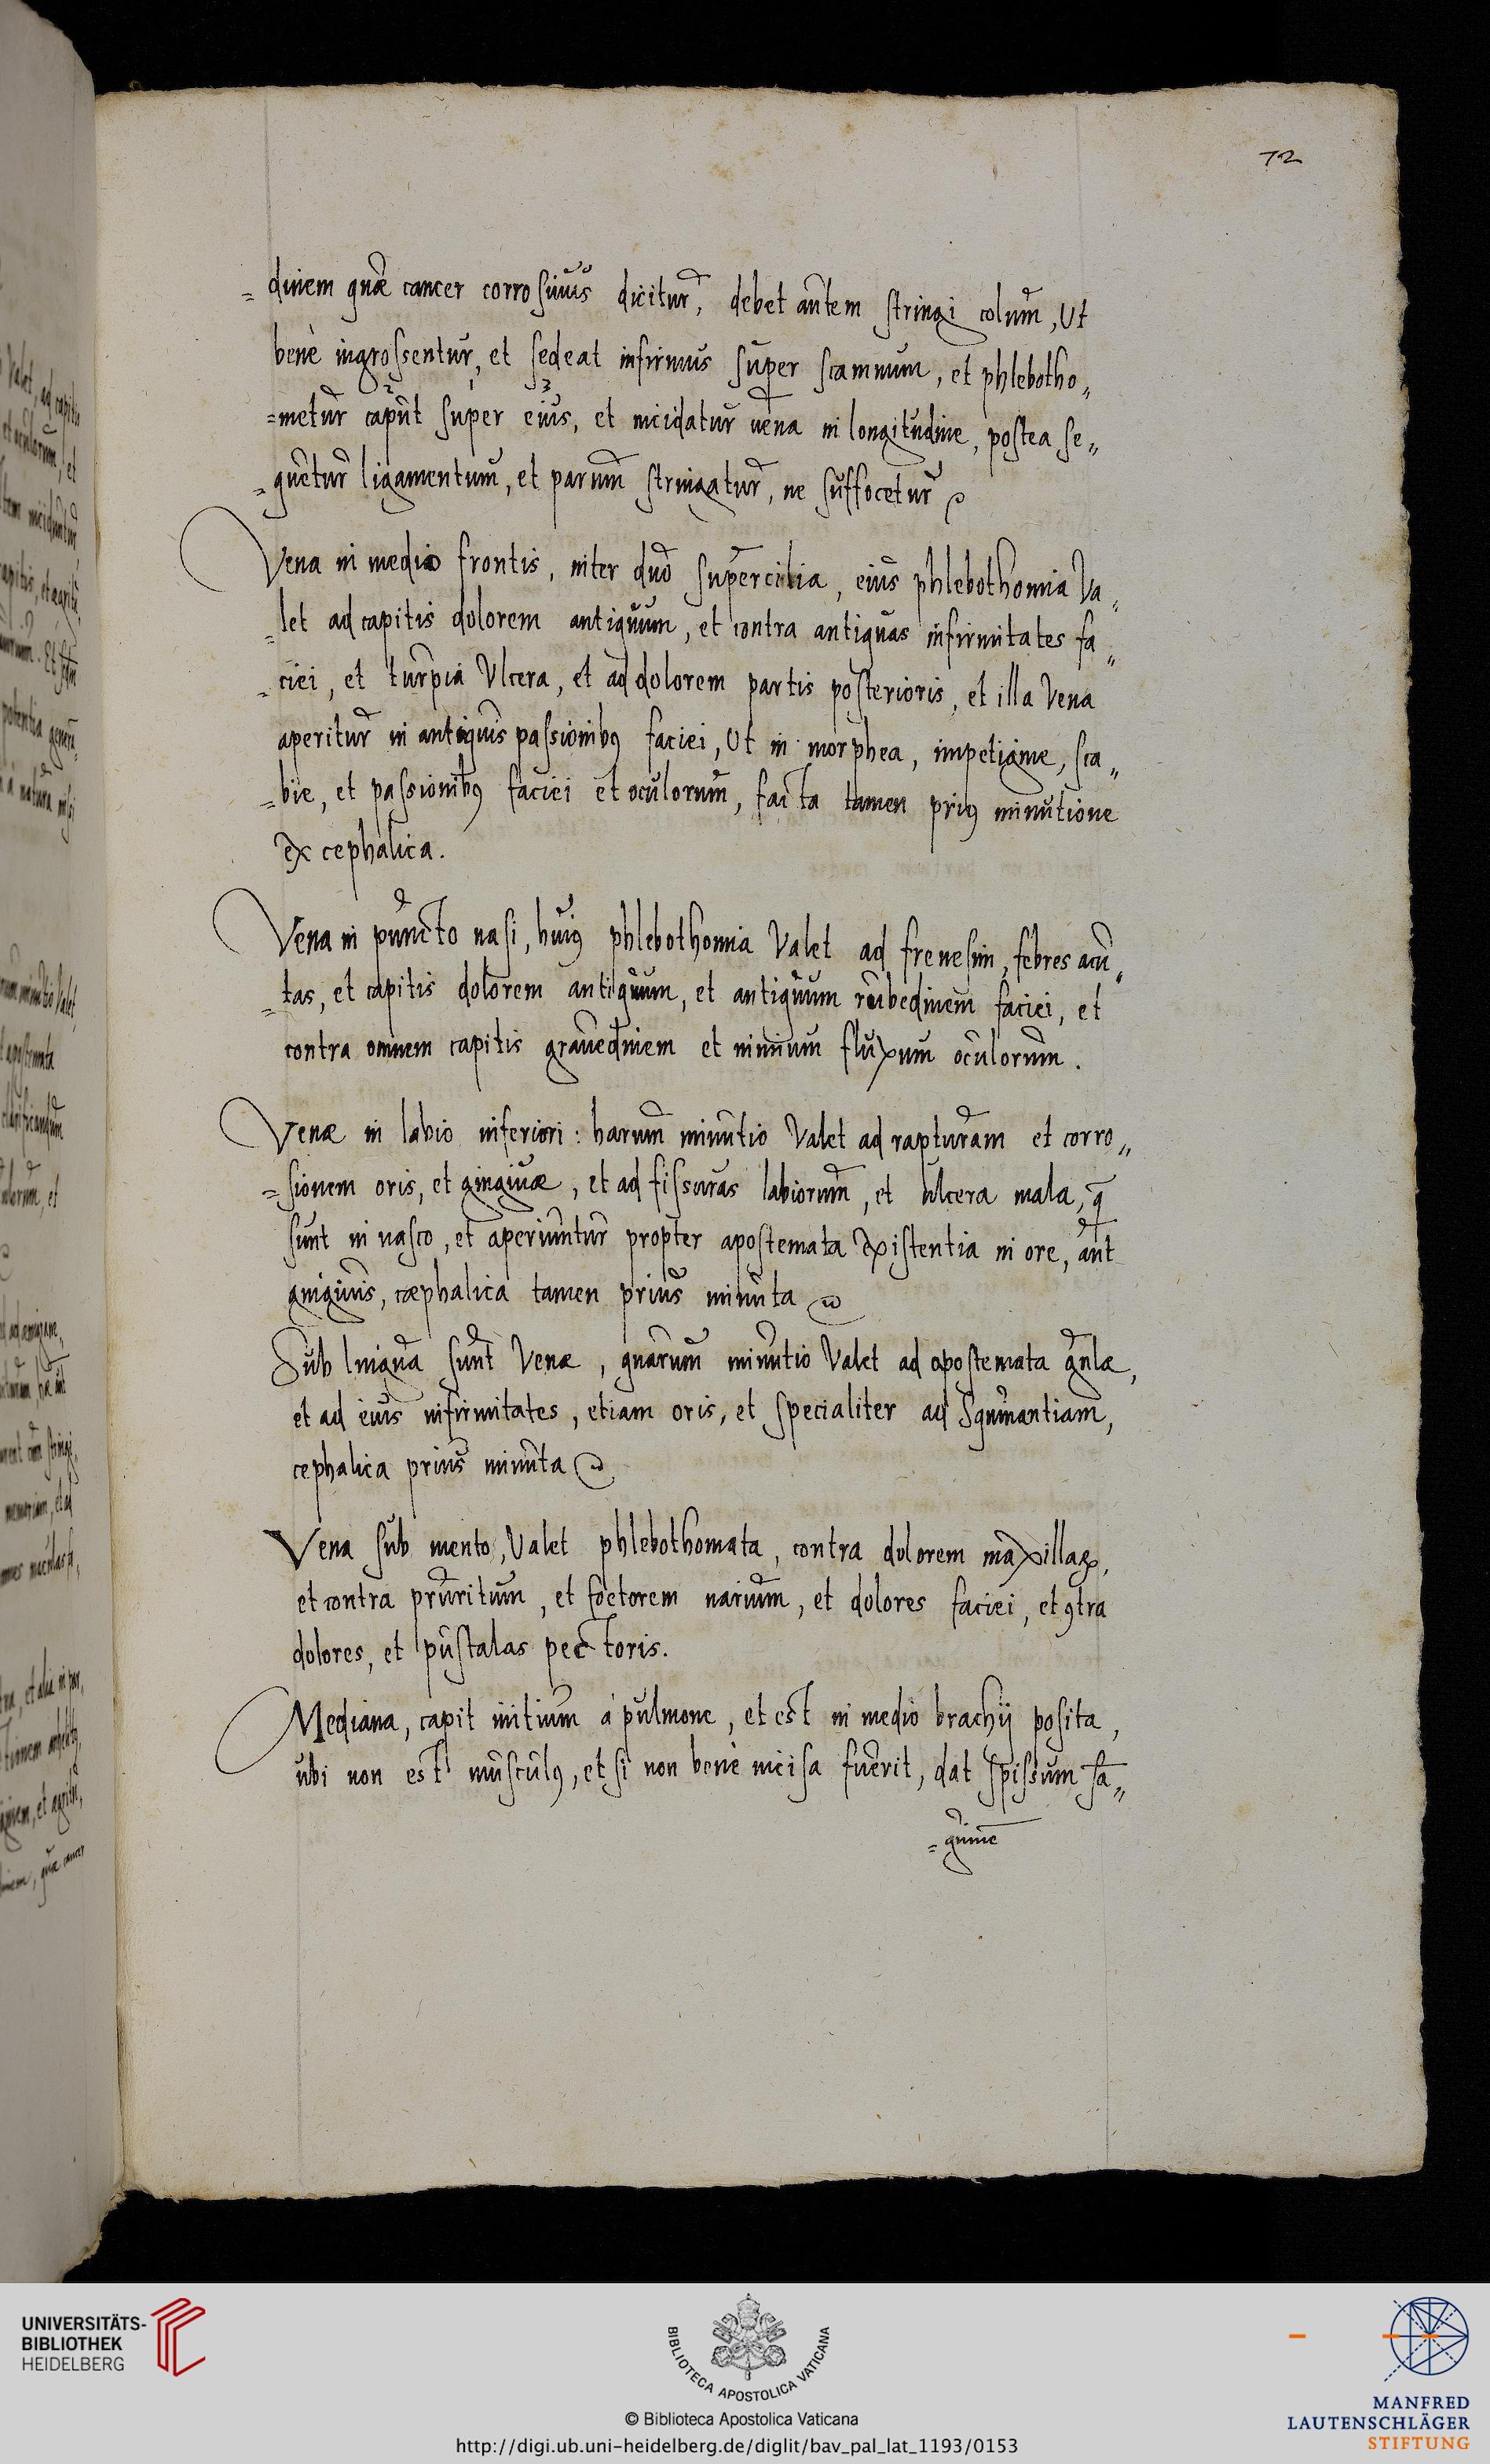 72
=dinem quæ cancer corrosiuus dicitur, debet autem stringi colum, Ut
benè ingrossentur, et sedeat infirmus super scamnum, et phlebotho„
2 1 3
=metur caput super eius, et incidatur uena in longitudine, postea se„
=quetur ligamentum, et parum stringatur, ne suffocetur
Vena in medio frontis, inter duo supercilia, eius phlebothomia Va„
=let ad capitis dolorem antiquum, et contra antiquas infirmitates fa„
=ciei, et turpia Ulcera, et ad dolorem partis posterioris, et illa Vena
aperitur in antiquis passionibꝯ faciei, Ut in morphea, impetigine, sca„
=bie, et passionibꝯ faciei et oculorum, facta tamen priꝯ minutione
ex cephalica.
Vena in puncto nasi, huiꝯ phlebothomia Valet ad frenesim, febres acu„
=tas, et capitis dolorem antiquum, et antiquum rubedinem faciei, et
contra omnem capitis grauedinem et nimium fluxum oculorum.
Venæ in labio inferiori: harum minutio Valet ad rapturam et corro„
=sionem oris, et gingiuæ, et ad fissuras labiorum, et ulcera mala, q̃
sunt in nasco, et aperiuntur propter apostemata existentia in ore, aut
gingiuis, cæphalica tamen prius minuta
Sub lingua sunt Venæ, quarum minutio Valet ad apostemata gulæ,
et ad eius infirmitates, etiam oris, et specialiter ad Squinantiam,
cephalica prius minuta
Vena sub mento, Valet phlebothomata, contra dolorem maxillaꝝ,
et contra pruritum, et foetorem narium, et dolores faciei, et ꝯtra
dolores, et pustalas pectoris.
Mediana, capit initium à pulmone, et est in medio brachij posita,
ubi non est musculꝯ, et si non benè incisa fuerit, dat spissum sã„
=guinē
UNIVERSITÄTS-
BIBLIOTHEK
HEIDELBERG
BIBLIOTECA APOSTOLICA VATICANA
© Biblioteca Apostolica Vaticana
http://digi.ub.uni-heidelberg.de/diglit/bav_pal_lat_1193/0153
MANFRED
LAUTENSCHLÄGER
STIFTUNG